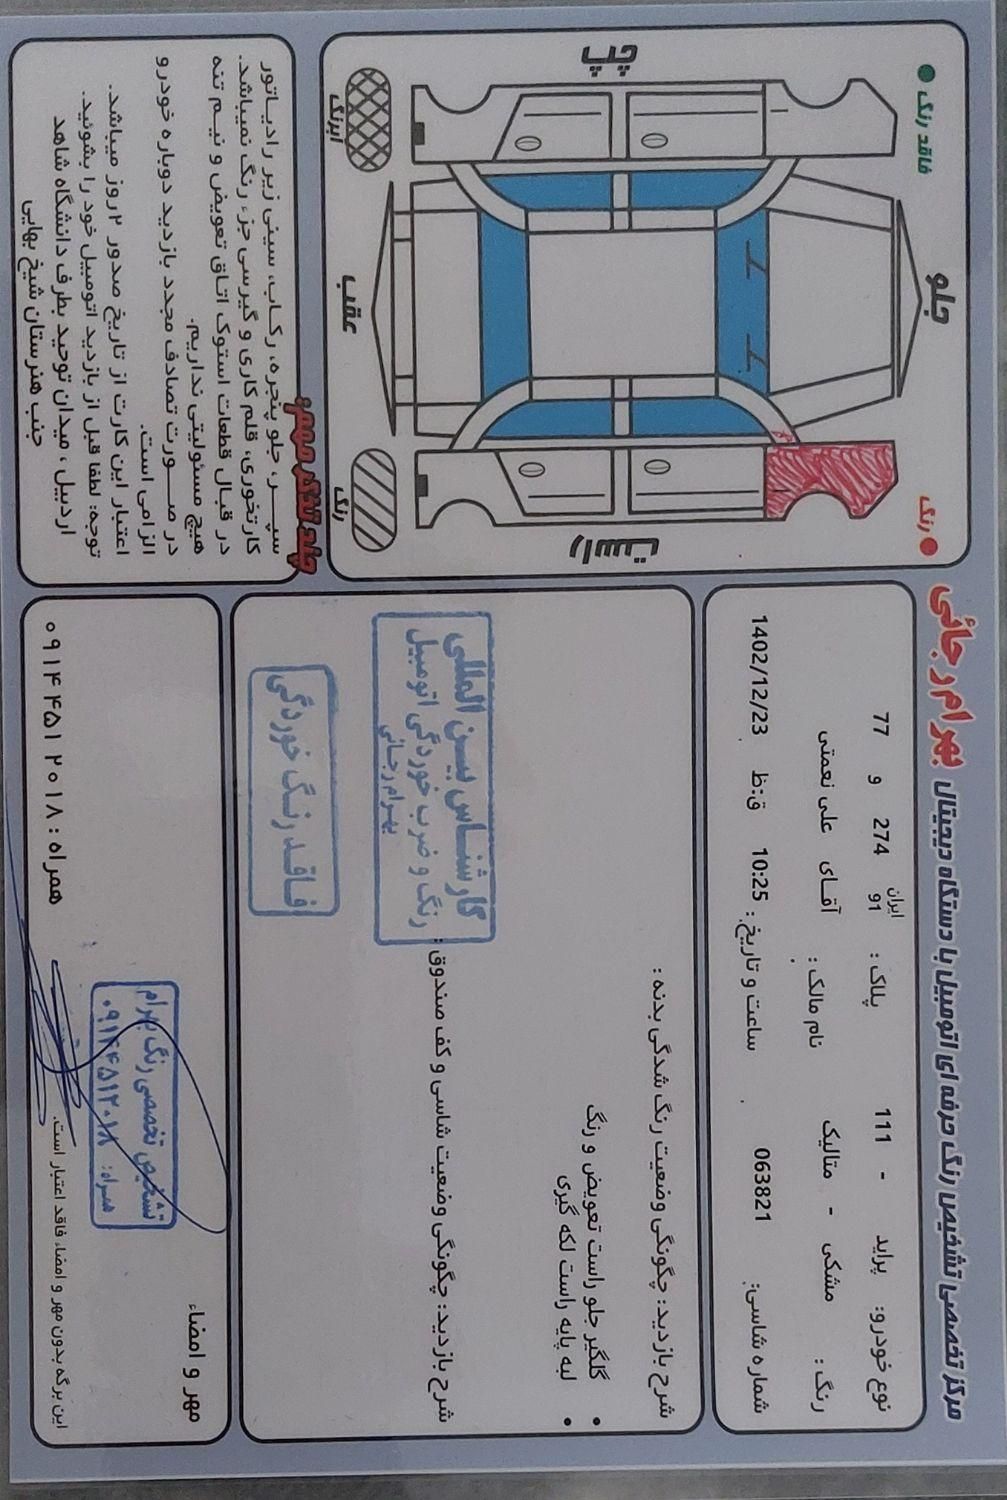 مرکز تخصصی تشخیص رنگ حرفه ای اتومبیل با دستگاه دیجیتال بهرام رجائی
نوع خودرو: پراید - 111 پلاک : ایران 91 274 و 77
رنگ : مشکی - متالیک نام مالک : آقای علی نعمتی
شماره شاسی: 063821 ساعت و تاریخ : 10:25 ق.ظ 1402/12/23
شرح بازدید: چگونگی وضعیت رنگ شدگی بدنه :
• گلگیر جلو راست تعویض و رنگ
• لبه پایه راست لکه گیری
شرح بازدید: چگونگی وضعیت شاسی و کف صندوق :
کارشناس بین المللی
رنگ و ضرب خوردگی اتومبیل
بهرام رجائی
فاقد رنگ خوردگی
مهر و امضاء
تشخیص تخصصی رنگ بهرام
همراه: ۰۹۱۴۴۵۱۲۰۱۸
همراه : ۰۹۱۴ ۴۵۱ ۲۰۱۸
این برگه بدون مهر و امضاء فاقد اعتبار است.
رنگ
فاقد رنگ
جلو
راست
چپ
عقب
رنگ
ابرنگ
چند تذکر مهم:
سپر، جلو پنجره، رکاب، سینی زیر رادیاتور
کارتخوری، قلم کاری و گیرسی جزء رنگ نمیباشد.
در قبال قطعات استوک اتاق تعویض و نیم تنه
هیچ مسئولیتی نداریم.
در صورت تصادف مجدد بازدید دوباره خودرو
الزامی است.
اعتبار این کارت از تاریخ صدور ۲ روز میباشد.
توجه: لطفا قبل از بازدید اتومبیل خود را بشوئید.
اردبیل ، میدان توحید بطرف دانشگاه شاهد
جنب هنرستان شیخ بهایی